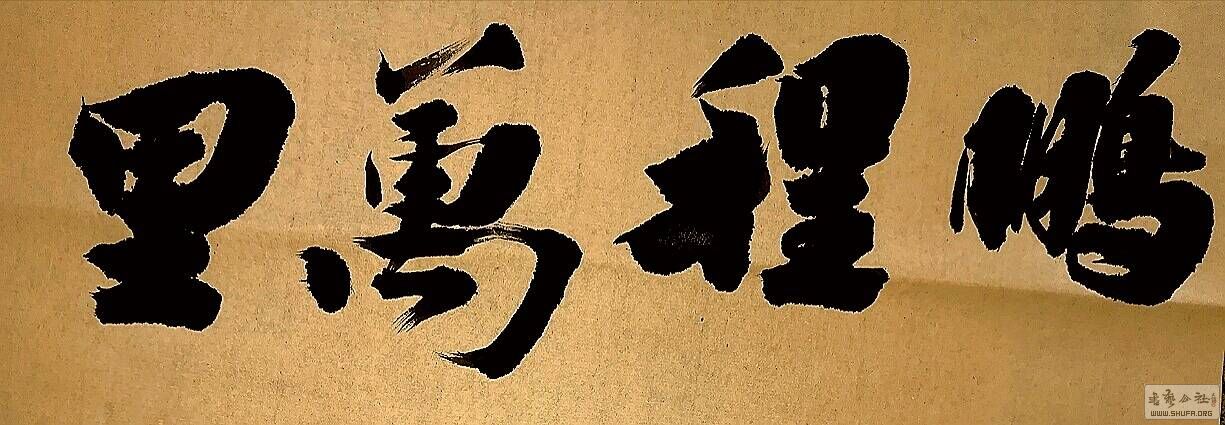 鵬程萬里
书艺公社
WWW.SHUFA.ORG